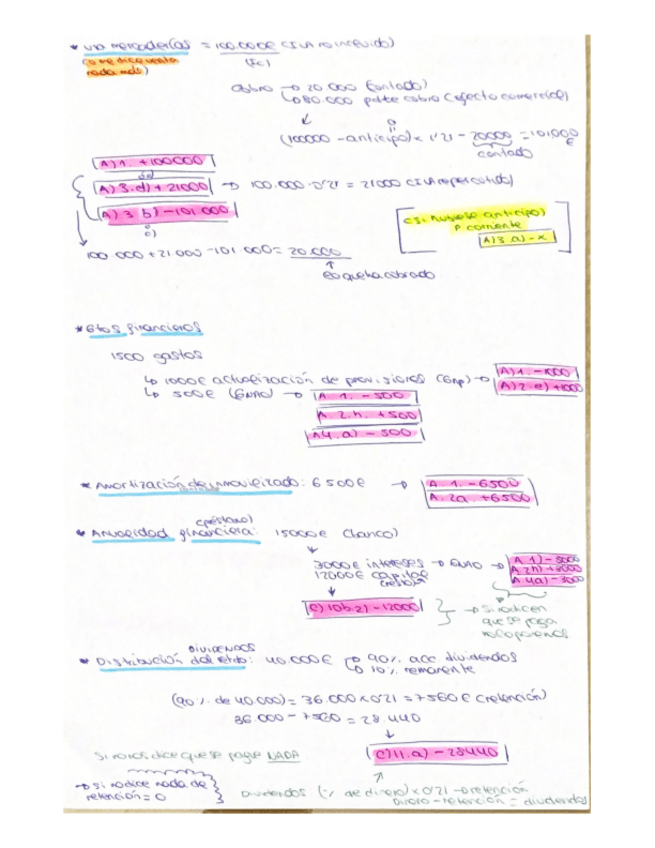 * Vta mercaderías = 100.000€ (IVA no incluido)
(si me dice venta (Fc)
nada más)
Cobro → 20.000 (contado)
↳ 80.000 pdte cobro (efecto comercial)
0
(100000 - anticipo) x 1'21 - 20000 = 101.000€
contado
A) 1. +100000
A) 3.d) + 21000 → 100.000 · 0'21 = 21000 (IVA repercutido)
A) 3 b) - 101.000
(si hubiese anticipo)
P corriente
A) 3 a) - x
100.000 + 21.000 - 101.000 = 20.000
lo que ha cobrado
* Gtos financieros
1500 gastos
↳ 1000€ actualización de provisiones (Gnp) → A) 1. - 1000
A) 2.e) +1000
↳ 500€ → A. 1. - 500
A. 2.h. + 500
A4.a) - 500
* Amortización de inmovilizado: 6500€ → A. 1. - 6500
A. 2a. +6500
(préstamo)
* Anualidad financiera: 15000€ (banco)
3000€ intereses → → A 1) - 3000
12000€ capital A 2h) +3000
A 4a) - 3000
C) 10b.2) - 12000 → Si no dicen
que se paga
no lo ponemos
Dividendos
* Distribución del rtdo: 40.000€ → 90% acc dividendos
↳ 10% remanente
(90% de 40.000) = 36.000 x 0'21 = 7560€ (retención)
36.000 - 7560 = 28.440
C) 11.a) - 28440
Si no nos dice que se pague NADA
→ Si no dice nada de
retención = 0
Dividendos (% de dinero) x 0'21 → retención
Dinero - retención = dividendos